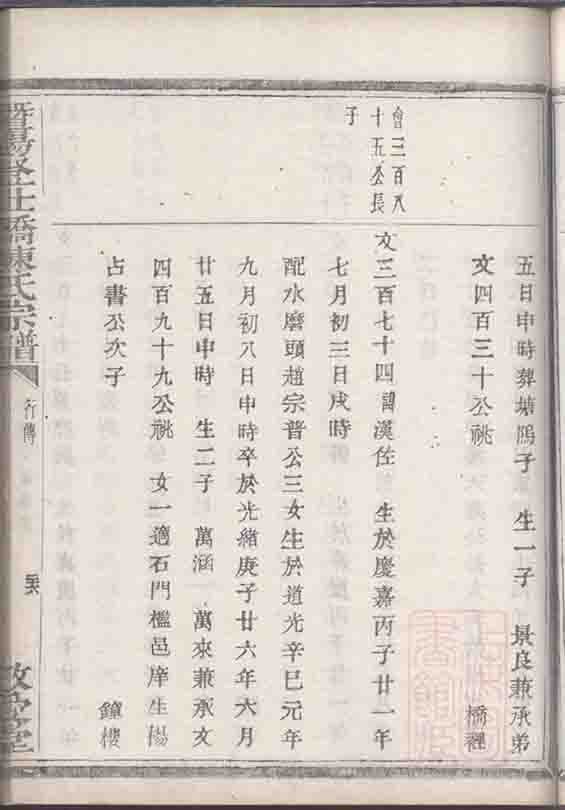 五日申時葬塘隖子 生一子 景良兼承弟
文四百三十公祧 橋裡
會三百八
十五公長
子
文三百七十四諱漢佐 生於慶嘉丙子廿一年
七月初三日戌時
配水磨頭趙宗普公三女生於道光辛巳元年
九月初八日申時卒於光緒庚子廿六年六月
廿五日申時 生二子 萬涵 萬來兼承文
四百九十九公祧 女一適石門檻邑庠生楊
占書公次子 鐘樓
暨陽 橋陳氏宗譜
行傳